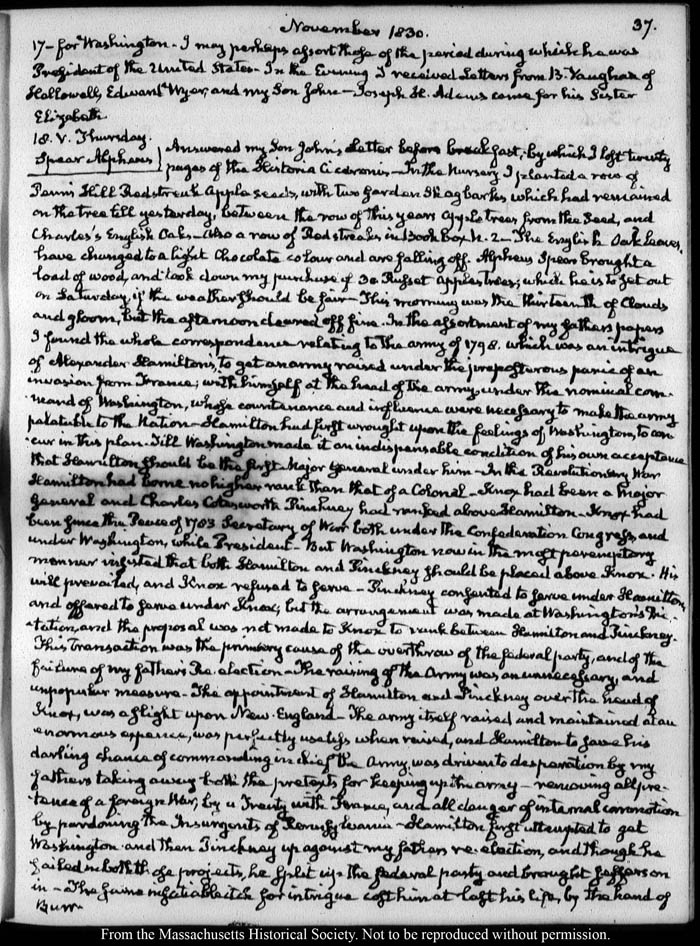 November 1830.
37.
17 - for Washington - I may perhaps assort those of the period during which he was
President of the United States - In the Evening I received Letters from B. Vaughan of
Hallowell, Edward Wyer, and my Son John - Joseph H. Adams came for his Sister
Elizabeth.
18. V. Thursday.
Spear Alpheus
Answered my Son John's Letter before breakfast, by which I lost twenty
pages of the Historia Ciceronis - In the Nursery I planted a row of
Penn's Hill Redstreak Apple seeds, with two garden Shagbarks which had remained
on the tree till yesterday, between the row of this years Apple trees from the Seed, and
Charles's English Oaks - Also a row of Redstreaks in Book Box N. 2 - The English Oak Leaves,
have changed to a light Chocolate colour and are falling off. Alpheus Spear brought a
load of wood, and took down my purchase of 30 Russet Apple trees, which he is to set out
on Saturday, if the weather should be fair - This morning was the thirteenth of Clouds
and gloom, but the afternoon cleared off fine. In the assortment of my father's papers
I found the whole correspondence relating to the army of 1798. which was an intrigue
of Alexander Hamilton's, to get an army raised under the preposterous panic of an
invasion from France, with himself at the head of the army, under the nominal com-
mand of Washington, whose countenance and influence were necessary to make the army
palatable to the Nation - Hamilton had first wrought upon the feelings of Washington, to con-
cur in this plan. Till Washington made it an indispensable condition of his own acceptance
that Hamilton should be the first Major General under him - In the Revolutionary War
Hamilton had borne no higher rank than that of a Colonel - Knox had been a Major
General and Charles Cotesworth Pinckney had ranked above Hamilton - Knox had
been since the Peace of 1783 Secretary of War both under the Confederation Congress, and
under Washington, while President - But Washington now in the most peremptory
manner insisted that both Hamilton and Pinckney should be placed above Knox. His
will prevailed, and Knox refused to serve - Pinckney consented to serve under Hamilton,
and offered to serve under Knox, but the arrangement was made at Washington's Dic-
tation, and the proposal was not made to Knox to rank between Hamilton and Pinckney.
This transaction was the primary cause of the overthrow of the federal party, and of the
failure of my father's Re-election - The raising of the Army was an unnecessary, and
unpopular measure - The appointment of Hamilton and Pinckney over the head of
Knox, was a slight upon New-England - The army itself raised and maintained at an
enormous expence, was perfectly useless when raised, and Hamilton to save his
darling chance of commanding in chief the Army, was driven to desperation by my
fathers taking away both the pretexts for keeping up the army - removing all pre-
tence of a foreign War, by a Treaty with France, and all danger of internal commotion
by pardoning the Insurgents of Pennsylvania - Hamilton first attempted to get
Washington and then Pinckney up against my fathers re-election, and though he
failed in both those projects, he split up the federal party and brought Jefferson
in - The same insatiable itch for intrigue cost him at last his life, by the hand of
Burr.
From the Massachusetts Historical Society. Not to be reproduced without permission.